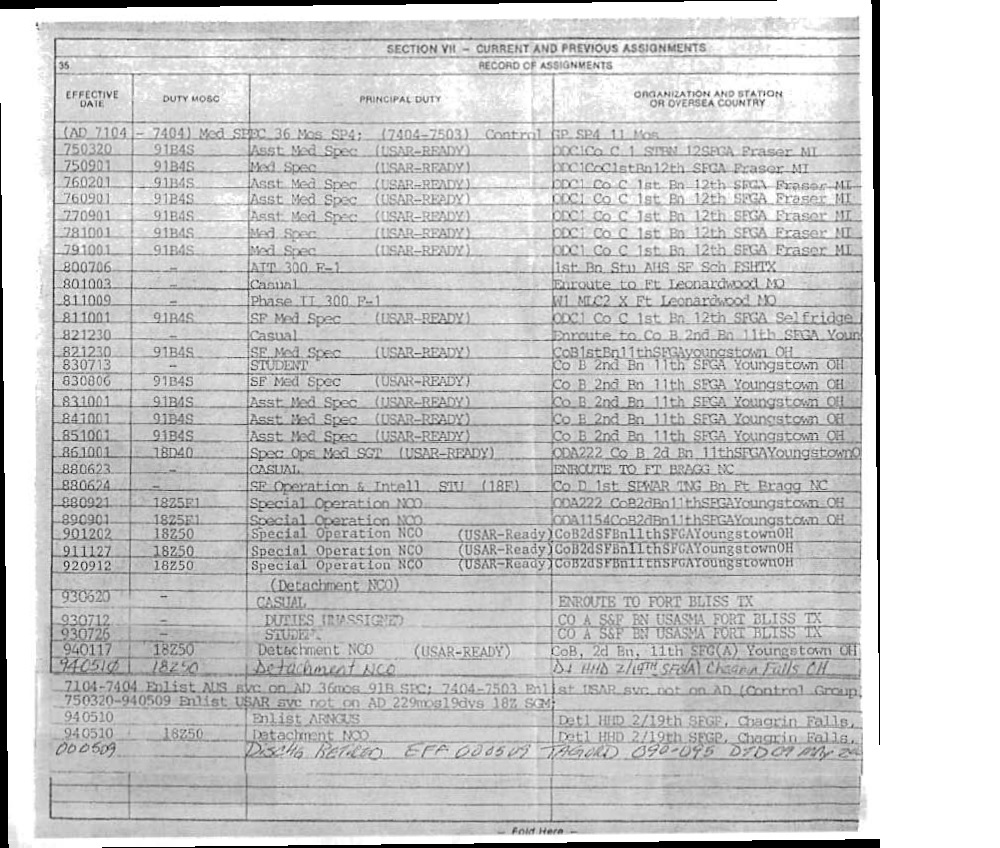 SECTION VII – CURRENT AND PREVIOUS ASSIGNMENTS
35 RECORD OF ASSIGNMENTS
EFFECTIVE DATE DUTY MOSC PRINCIPAL DUTY ORGANIZATION AND STATION OR OVERSEA COUNTRY
(AD 7104 - 7404) Med SPEC 36 Mos SP4; (7404-7503) Control GP SP4 11 Mos
750320 91B4S Asst Med Spec (USAR-READY) ODC1Co C 1 STBN 12SFGA Fraser MI
750901 91B4S Med Spec (USAR-READY) ODC1CoC1stBn12th SFGA Fraser MI
760201 91B4S Asst Med Spec (USAR-READY) ODC1 Co C 1st Bn 12th SFGA Fraser MI
760901 91B4S Asst Med Spec (USAR-READY) ODC1 Co C 1st Bn 12th SFGA Fraser MI
770901 91B4S Asst Med Spec (USAR-READY) ODC1 Co C 1st Bn 12th SFGA Fraser MI
781001 91B4S Med Spec (USAR-READY) ODC1 Co C 1st Bn 12th SFGA Fraser MI
791001 91B4S Med Spec (USAR-READY) ODC1 Co C 1st Bn 12th SFGA Fraser MI
800706 - AIT 300 F-1 1st Bn Stu AHS SF Sch FSHTX
801003 - Casual Enroute to Ft Leonardwood MO
811009 - Phase II 300 F-1 W1 MLC2 X Ft Leonardwood MO
811001 91B4S SF Med Spec (USAR-READY) ODC1 Co C 1st Bn 12th SFGA Selfridge
821230 - Casual Enroute to Co B 2nd Bn 11th SFGA Youn
821230 91B4S SF Med Spec (USAR-READY) CoB1stBn11thSFGAyoungstown OH
830713 - STUDENT Co B 2nd Bn 11th SFGA Youngstown OH
830806 91B4S SF Med Spec (USAR-READY) Co B 2nd Bn 11th SFGA Youngstown OH
831001 91B4S Asst Med Spec (USAR-READY) Co B 2nd Bn 11th SFGA Youngstown OH
841001 91B4S Asst Med Spec (USAR-READY) Co B 2nd Bn 11th SFGA Youngstown OH
851001 91B4S Asst Med Spec (USAR-READY) Co B 2nd Bn 11th SFGA Youngstown OH
861001 18D40 Spec Ops Med SGT (USAR-READY) ODA222 Co B 2d Bn 11thSFGAYoungstownO
880623 - CASUAL ENROUTE TO FT BRAGG NC
880624 - SF Operation & Intell STU (18F) Co D 1st SPWAR TNG Bn Ft Bragg NC
880921 18Z5F1 Special Operation NCO ODA222 CoB2dBn11thSFGAYoungstown OH
890901 18Z5F1 Special Operation NCO ODA1154CoB2dBn11thSFGAYoungstown OH
901202 18Z50 Special Operation NCO (USAR-Ready) CoB2dSFBn11thSFGAYoungstownOH
911127 18Z50 Special Operation NCO (USAR-Ready) CoB2dSFBn11thSFGAYoungstownOH
920912 18Z50 Special Operation NCO (USAR-Ready) CoB2dSFBn11thSFGAYoungstownOH
(Detachment NCO)
930620 - CASUAL ENROUTE TO FORT BLISS TX
930712 - DUTIES UNASSIGNED CO A S&F BN USASMA FORT BLISS TX
930726 - STUDENT CO A S&F BN USASMA FORT BLISS TX
940117 18Z50 Detachment NCO (USAR-READY) CoB, 2d Bn, 11th SFG(A) Youngstown OH
940510 18Z50 Detachment NCO D1 HHD 2/19TH SFG(A) Chagrin Falls OH
7104-7404 Enlist AUS svc on AD 36mos 91B SPC; 7404-7503 Enlist USAR svc not on AD (Control Group,
750320-940509 Enlist USAR svc not on AD 229mos19dys 18Z SGM;
940510 Enlist ARNGUS Det1 HHD 2/19th SFGP, Chagrin Falls,
940510 18Z50 Detachment NCO Det1 HHD 2/19th SFGP, Chagrin Falls,
000509 DISCHG RETIRED EFF 000509 TAGORD 090-095 DTD 09 May 20
— Fold Here —